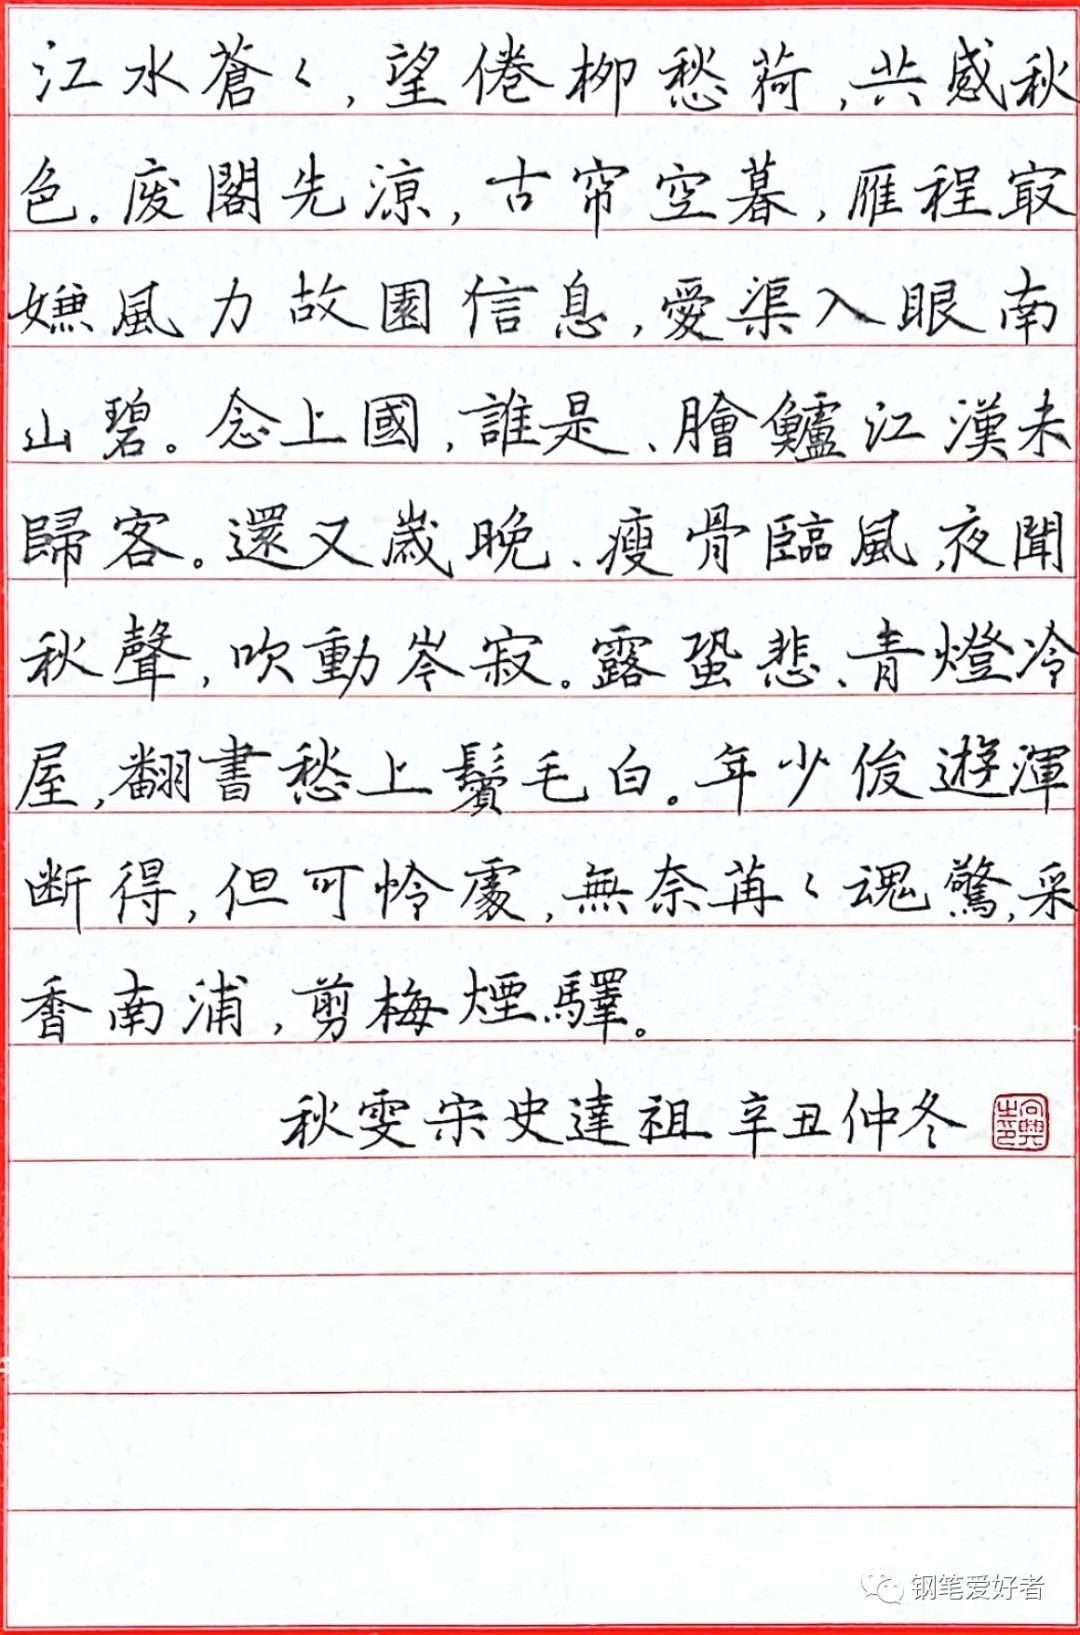 江水蒼〻,望倦柳愁荷,共感秋
色。废閣先涼,古帘空暮,雁程冣
嫌風力故園信息,愛渠入眼南
山碧。念上國,誰是、膾鱸江漢未
歸客。還又歲晚、瘦骨臨風,夜聞
秋聲,吹動岑寂。露蛩悲、青燈冷
屋,翻書愁上鬢毛白。年少俊遊渾
断得,但可怜處,無奈苒〻魂驚,采
香南浦,剪梅煙驛。
秋雯宋史達祖辛丑仲冬
钢笔爱好者